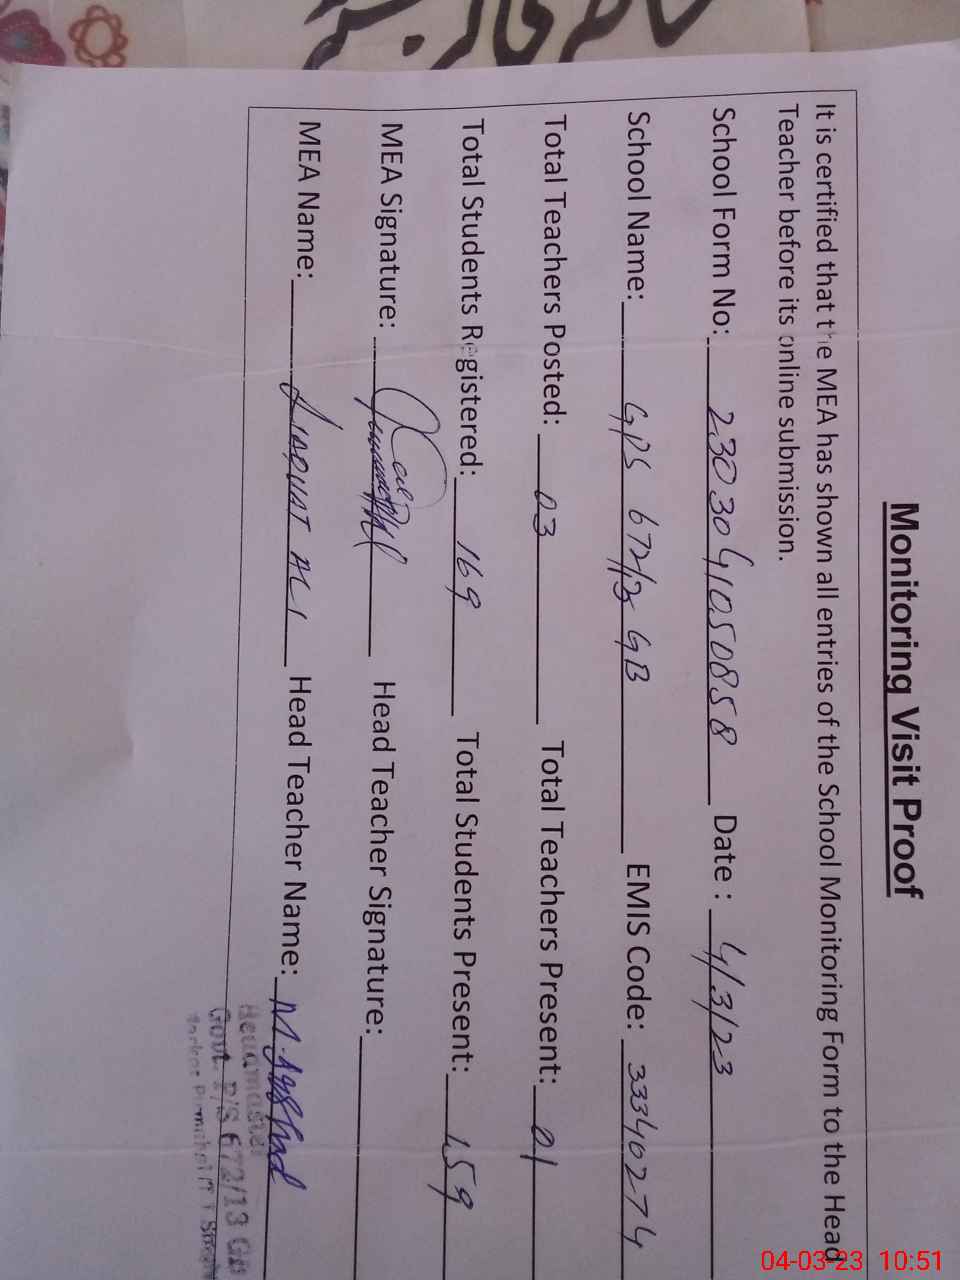 Monitoring Visit Proof
It is certified that the MEA has shown all entries of the School Monitoring Form to the Head
Teacher before its online submission.
School Form No: 2303041050858 Date : 4/3/23
School Name: GPS 672/13 GB EMIS Code: 33340274
Total Teachers Posted: 03 Total Teachers Present: 01
Total Students Registered: 169 Total Students Present: 159
MEA Signature: Head Teacher Signature:
MEA Name: ALI Head Teacher Name: M. Arshad
Headmaster
Govt. P/S 672/13 GB
04-03-23 10:51